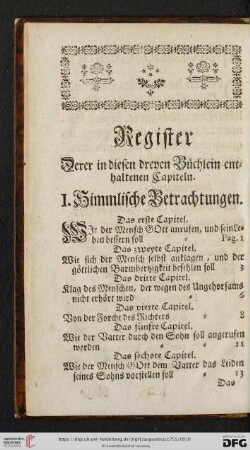 Register
Derer in diesen dreyen Büchlein ent-
haltenen Capiteln.
I. Himmlische Betrachtungen.
Das erste Capitel.
Wie der Mensch GOtt anrufen, und sein Le-
ben bessern soll Pag. 1
Das zweyte Capitel.
Wie sich der Mensch selbst anklagen, und der
göttlichen Barmherzigkeit befehlen soll 3
Das dritte Capitel.
Klag des Menschen, der wegen des Ungehorsams
nicht erhört wird 6
Das vierte Capitel.
Von der Forcht des Richters 8
Das fünfte Capitel.
Wie der Vatter durch den Sohn soll angerufen
werden 11
Das sechste Capitel.
Wie der Mensch GOtt dem Vatter das Leiden
seines Sohns vorstellen soll 13
Das